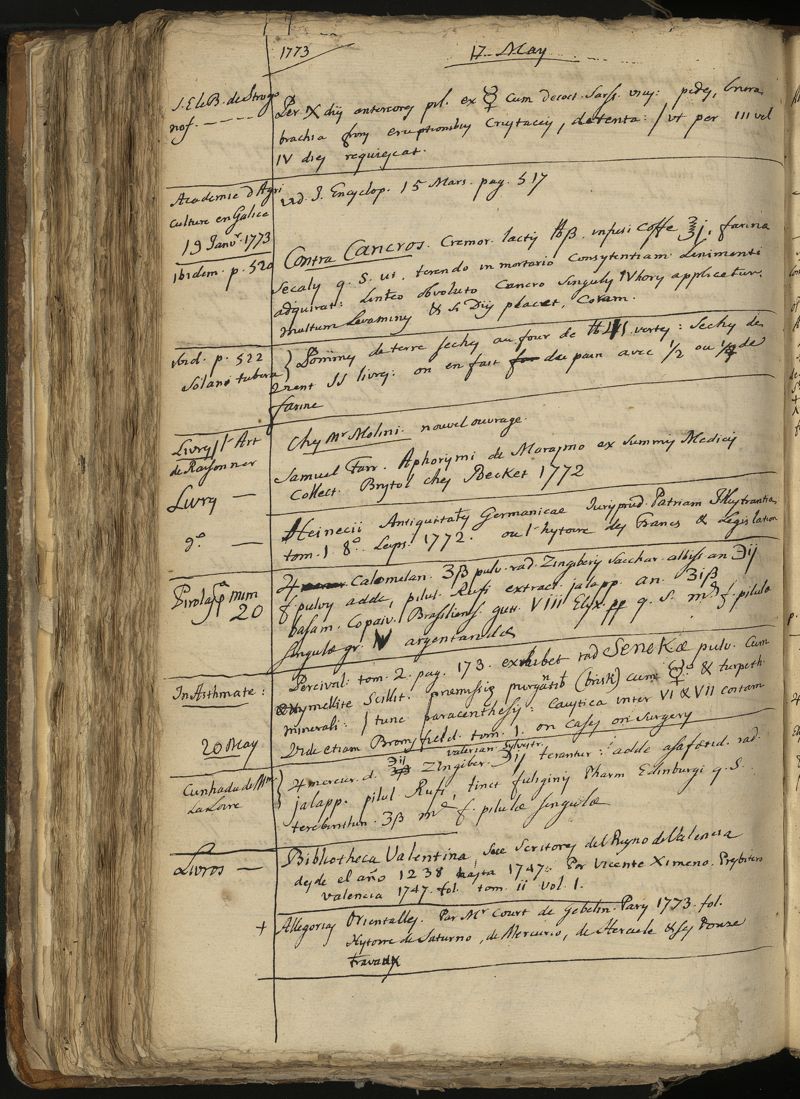 1773
17 May
S. El. B. de Strogo
nof.
Per IX dies antecores pil. ex ☿ cum decoct. Sarsp. vicis: pedes, crura
brachia eruptionibus Crustaceis, detenta: ut per III vel
IV dies requiescat.
Academie d'Agri
culture en Galice
19 Janv.r 1773
vid. J. Encyclop. 15 Mars. pag. 517
ibidem. p. 520
Contra Cancros. Cremor. lactis ℔ß. infusi Coffe ʒj. farina
Secalis q. S. ut. terendo in mortario Consystentiam Linimenti
adquirat: Linteo obvoluto Cancro Singulis IV horis applicetur.
multum Levaminis & si Diis placet, Coram.
vid. p. 522
Solano tubera
Pommes de terre seches au four de vertes: Seches de
livres: on en fait du pain avec 1/2 ou 1/4 de
farine
Livres l'Art
de Raisonner
Chez Mr Molini. nouvel ouvrage.
Livrs —
Samuel Farr. Aphorismi de Marasmo ex summis Medicis
Collect. Brystol chez Becket 1772
do —
Heinecii Antiquitates Germanicae Jurisprud. Patriam Illustrantia
tom. 1. 8°. Leips. 1772. ou l'hystoire des Francs & Legislation
num
20
Calomelan. ʒß pulv. rad. Zingiberis Sacchar. albiss. an ℈ij
f. pulvis adde, pilul. Rufi extract. jalapp. an. ʒiß
balsam. Copaiv. Brasiliens. gutt. VIII Elix. pp q. S. m. f. pilulæ
Singulæ gr. IV argentandæ
In Asthmate:
Percival: tom. 2. pag. 173. exhibet rad SeneKæ pulv. Cum
Oxymellite Scillit. præmissis purgantib (brisk) cum ☿ & turpeth
minerali: tunc paracenthesis: Caustica inter VI & VII costam
Vide etiam Bromfield. tom. 1. on Cases on Surgery
20 May
Cunhada de Mme
La Loire
valerian Sylvestr.
mercur. d. Zingiber. ℈ij terantur: adde asafœtid. rad.
jalapp. pilul Rufi, tinct fuliginis Pharm Edinburgi q. S.
terebinthin. ʒß m. f. pilulæ Singulæ
Livros —
Bibliotheca Valentina, Seu Scritores del Reyno de Valencia
desde el año 1238 hasta 1747. Por Vicente Ximeno. Presbitero
Valencia 1747. fol. tom. ii vol. 1.
+ Allegories Orientalles. Par Mr Court de Gebelin. Paris 1773. fol.
Hystoire de Saturno, de Mercurio, de Hercule & ses Douze
travaux